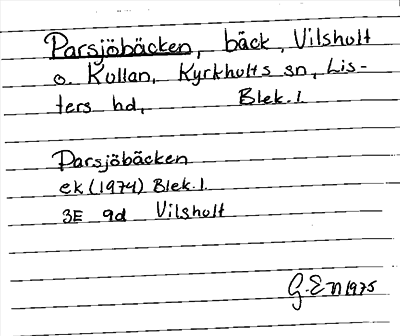 Parsjöbäcken, bäck, Vilshult
o. Kullan, Kyrkhults sn, Lis-
ters hd, Blek. l.
Parsjöbäcken
ek (1974) Blek. l.
3E 9d Vilshult
G. E-n 1975